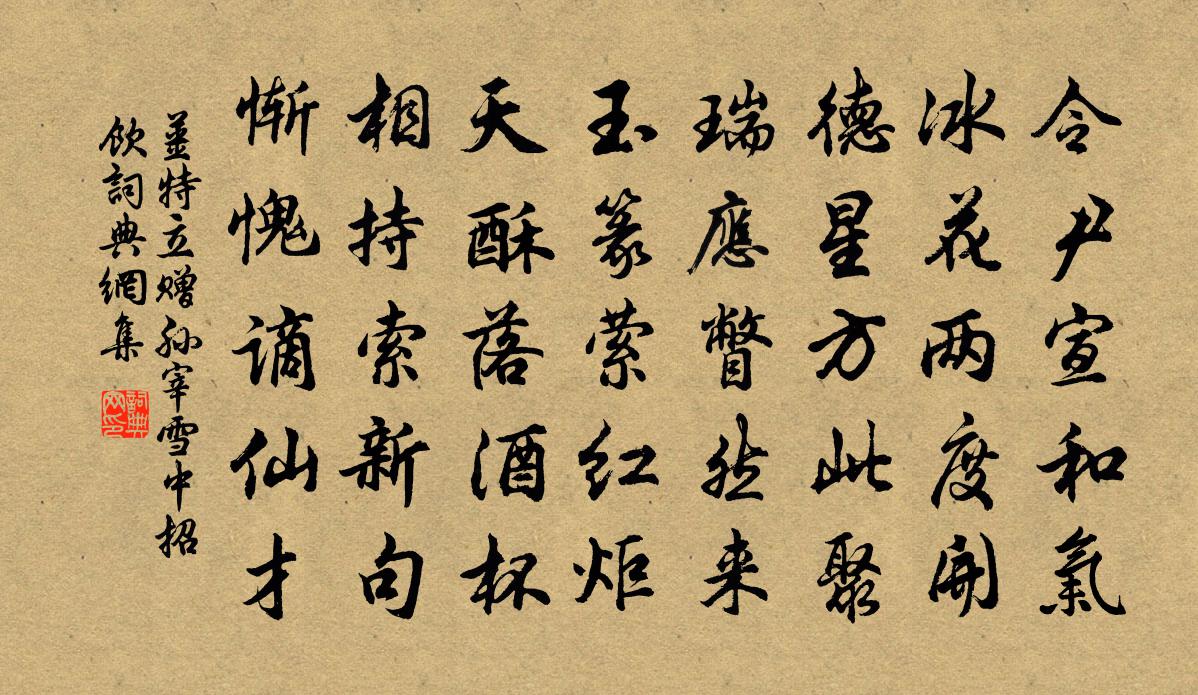 令尹宣和氣
冰花两度開
德星方此聚
瑞應瞥然来
玉篆萦红炬
天酥落酒杯
相持索新句
惭愧谪仙才
姜特立赠孙宰雪中招
飲詞典網集
詞典网印